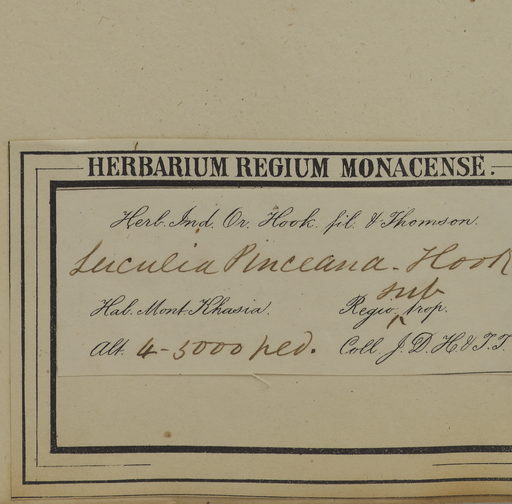 HERBARIUM REGIUM MONACENSE.
Herb. Ind. Or. Hook. fil. & Thomson.
Luculia Pinceana. Hook
sub
Hab. Mont. Khasia. Regio ^ trop.
Alt. 4-5000 ped. Coll. J. D. H. & T. T.